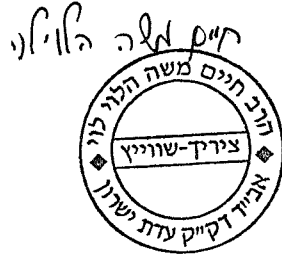 חיים משה הלוי לוי
הרב חיים משה הלוי לוי
ציריך-שווייץ
אבי״ד דק״ק עדת ישרון